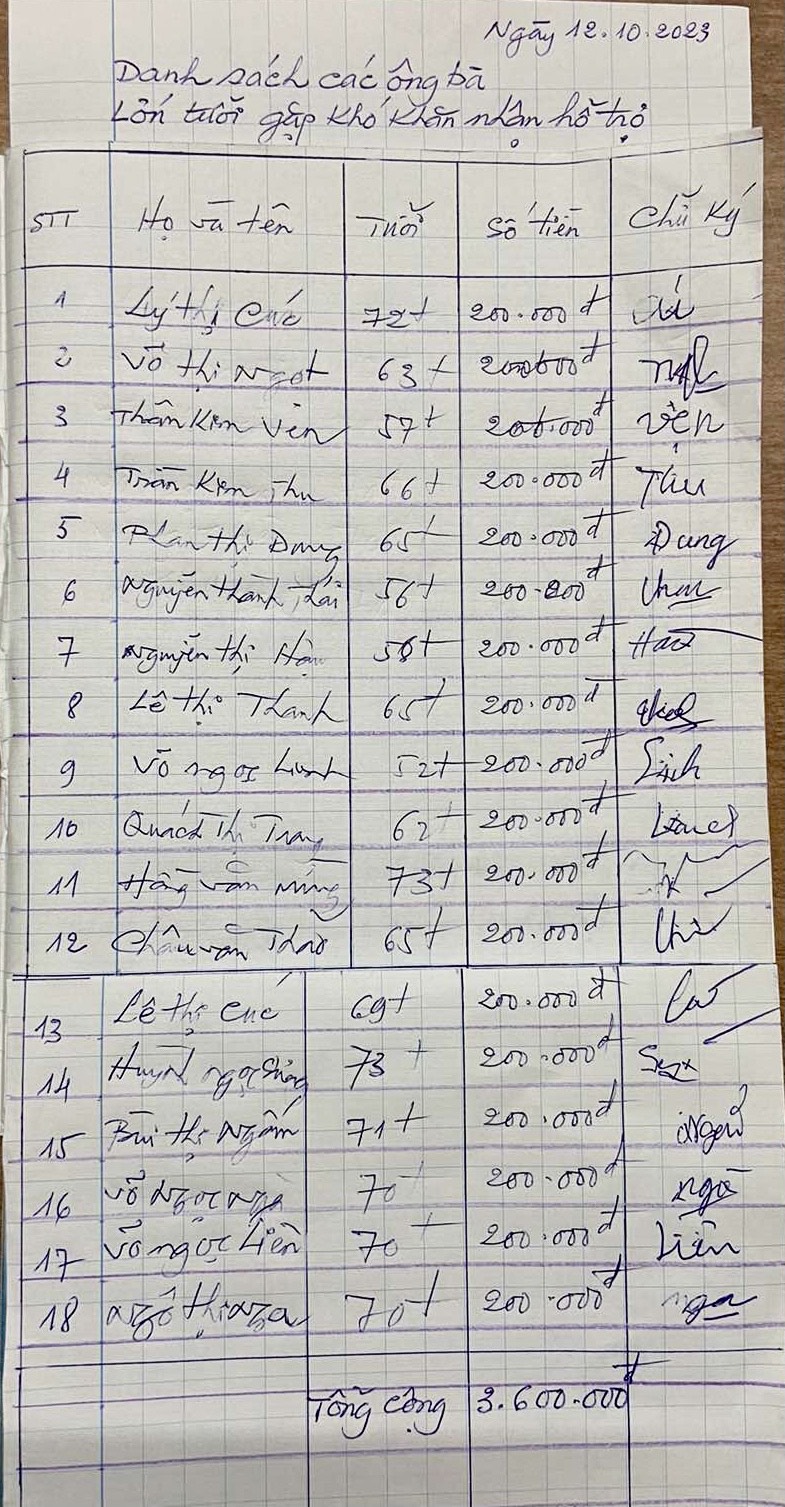 Ngày 12.10.2023
Danh sách các ông bà
Lớn tuổi gặp khó khăn nhận hỗ trợ
STT Họ và tên Tuổi Số tiền Chữ ký
1 Lý thị Cúc 72t 200.000đ
2 Võ thị Ngọt 63t 200.000đ
3 Thân Kim Vên 57t 200.000đ Vẹn
4 Trần Kim Thu 66t 200.000đ Thu
5 Phan thị Dung 65t 200.000đ Dung
6 Nguyễn thành Thái 56t 200.000đ
7 Nguyễn thị Hậu 200.000đ
8 Lê thị Thanh 65t 200.000đ
9 Võ ngọc 52t 200.000đ
10 Quách Thị Trang 62t 200.000đ
11 văn 73t 200.000đ
12 Châu văn Thao 65t 200.000đ
13 Lê thị Cúc 69t 200.000đ
14 Huỳnh ngọc 73t 200.000đ
15 Bùi thị Ngắm 71t 200.000đ
16 Võ Ngọc Ngà 70t 200.000đ ngà
17 Võ ngọc Liên 70t 200.000đ Liên
18 Ngô thị Nga 70t 200.000đ nga
Tổng cộng 3.600.000đ